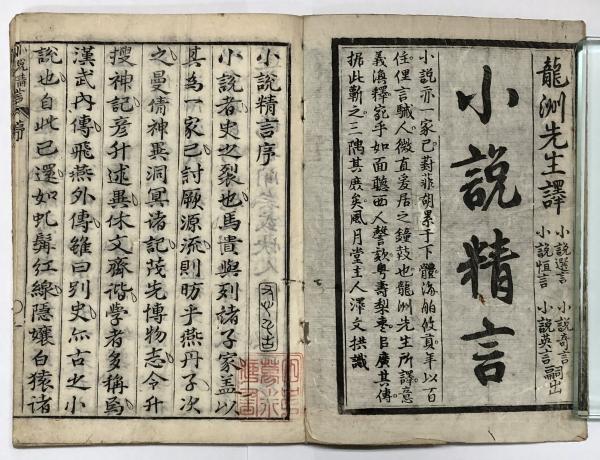 龍洲先生譯
小說選言 小說奇言
小說恒言 小說英言嗣出
小說精言
小說亦一家已對菲胡累于下體海舶攸真年以百
住俚言馘人微直爰居之鐘鼓也龍洲先生所譯意
義渙釋宛乎如面聽西人謦欬粤壽梨棗臣廣其傳
据此斬之三隅其庶矣風月堂主人澤文拱識
小說精言序
小說者史之裂也馬貴與列諸子家蓋以
其為一家已討厥源流則昉乎燕丹子次
之曼倩神異洞冥诸記茂先博物志令升
搜神記彦升述異休文齊谐學者多稱焉
漢武內傳飛燕外傳雖曰別史亦古之小
說也自此已還如虬髯紅線隠孃白猿诸
小說精言 序